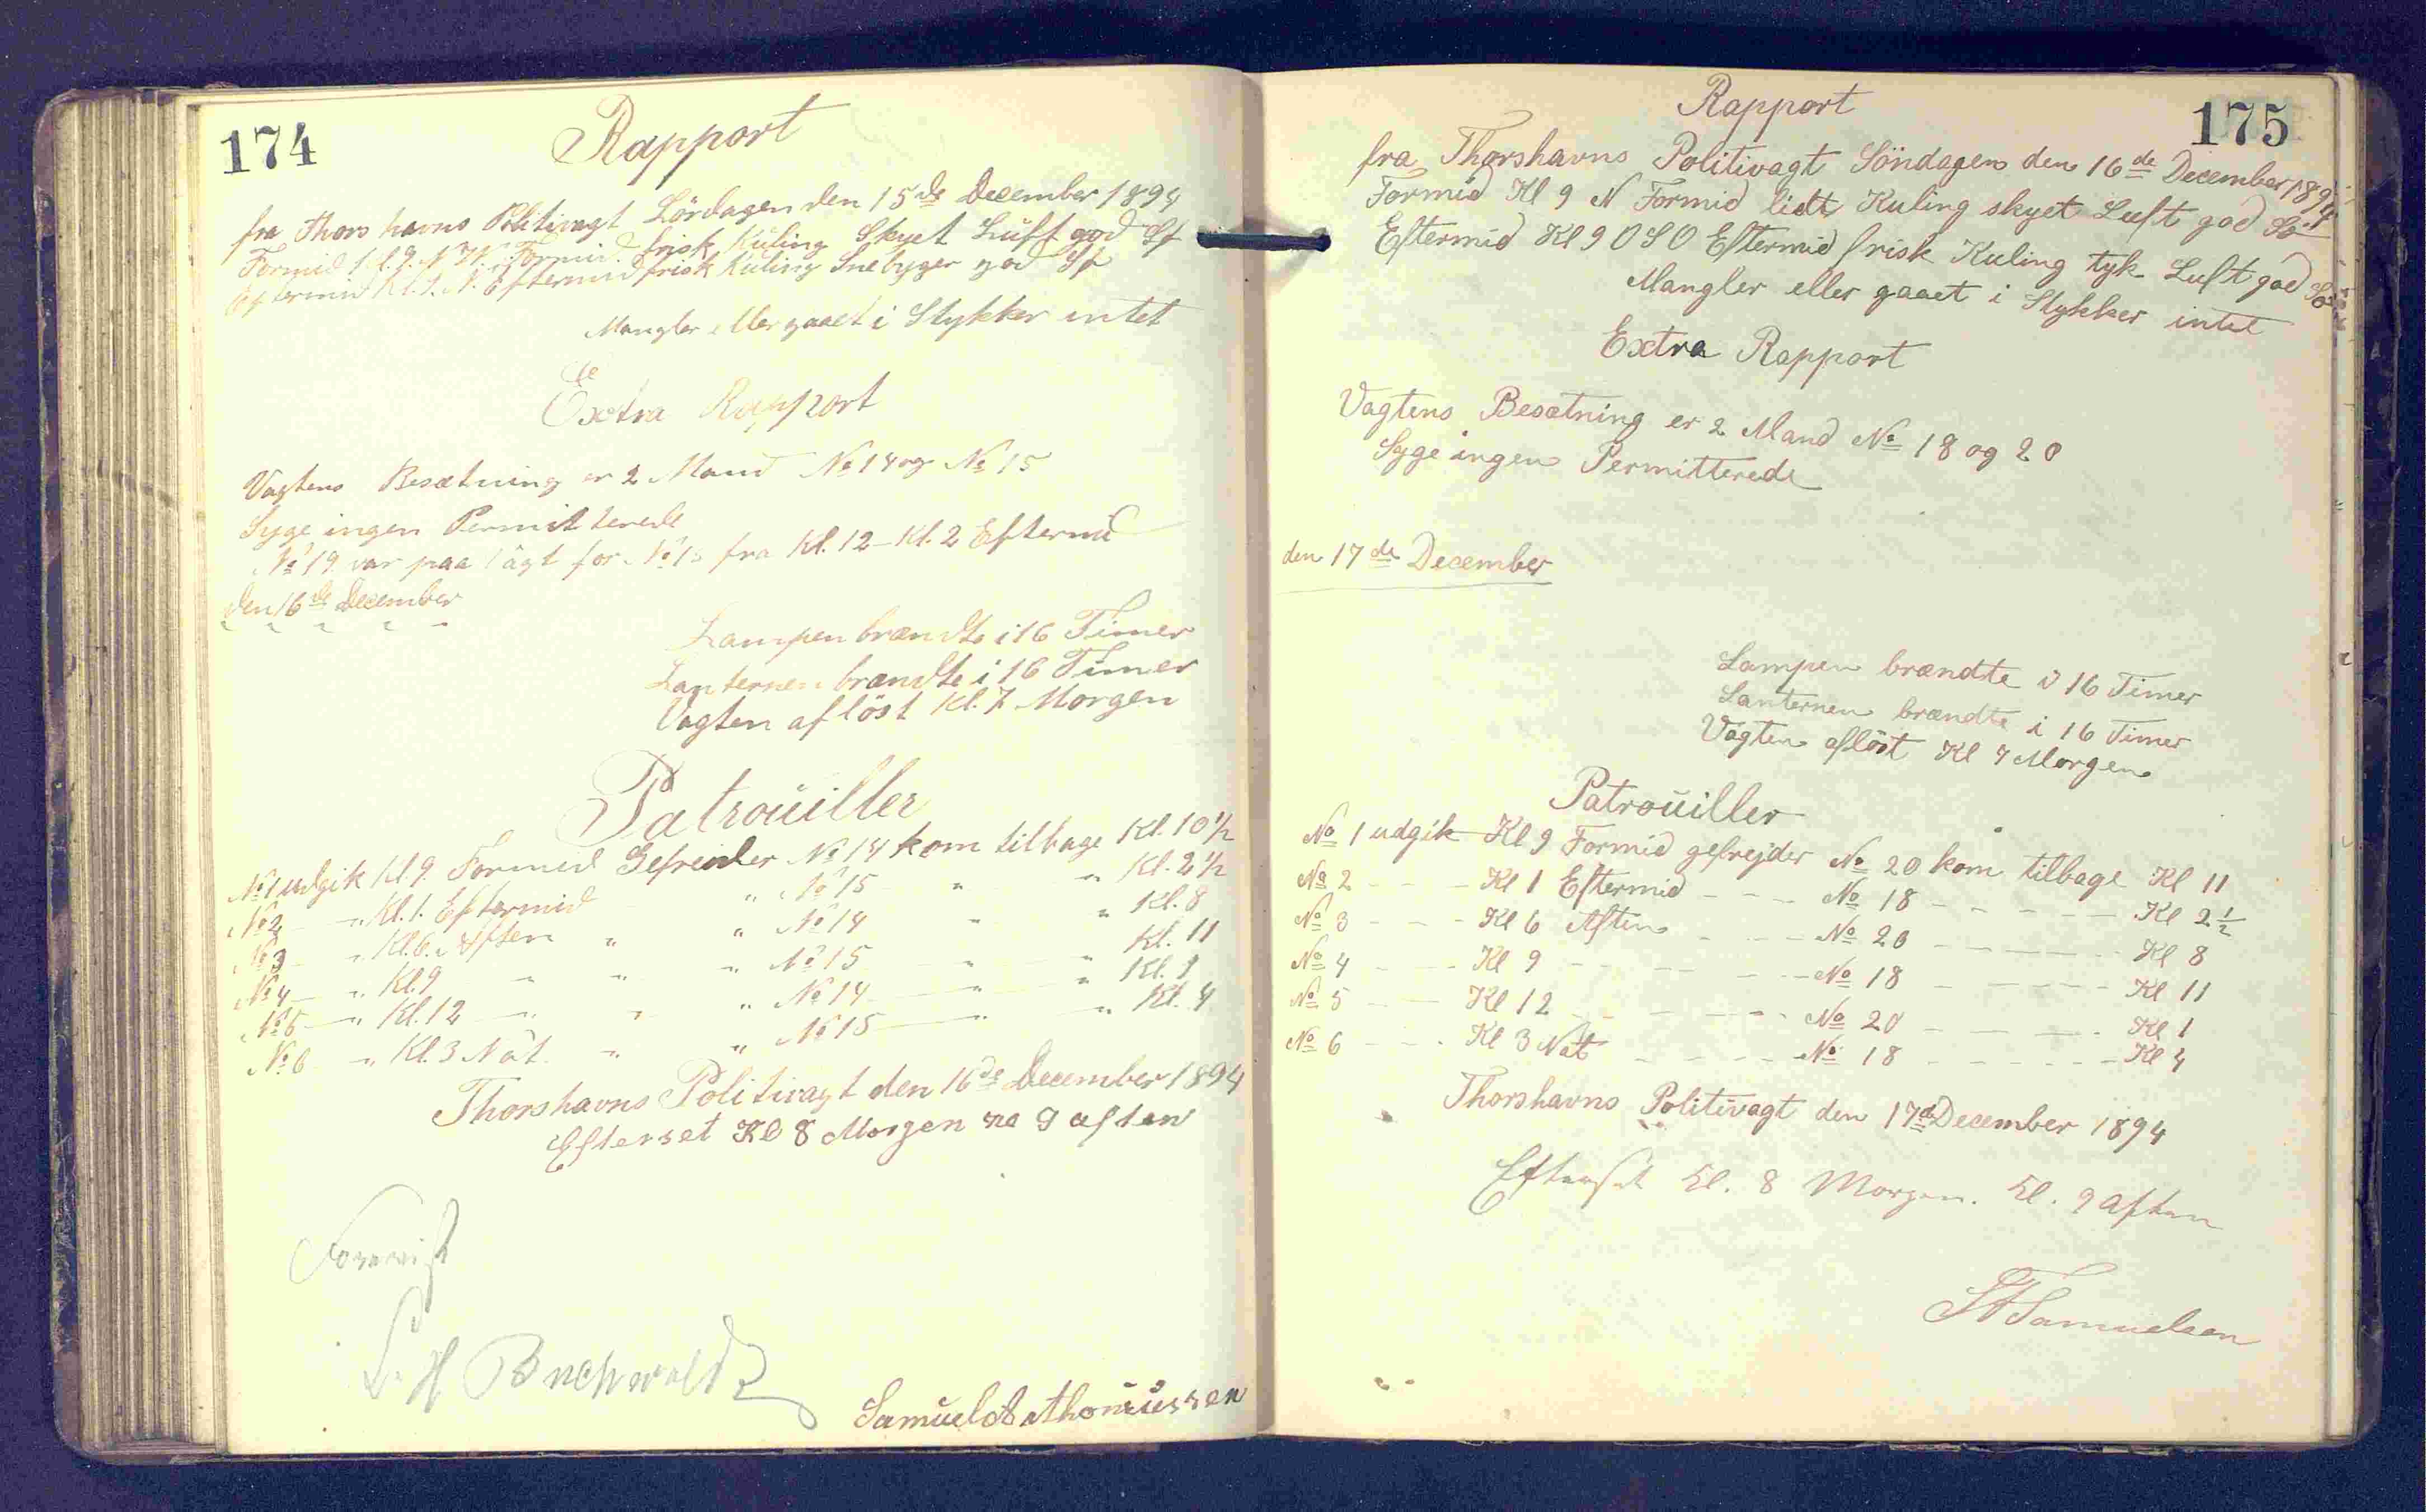 174
Rapport
fra Thorshavns Politivagt Lördagen den 15de December 1894
Formid Kl. 9. N.W. Formid. frisk Kuling Skyet Luft god Sf
Eftermid Kl. 9. N. Eftermid frisk Kuling Snebyger god Sf
Mangler eller gaaet i Stykker intet
Extra Rapport
Vagtens Besætning er 2 Mand No 14 og No 15
Syge ingen Permitterede
No 19 var paa Vagt for No 15 fra Kl. 12 - Kl. 2 Eftermid
den 16de December
Lampen brændte i 16 Timer
Lanternen brændte i 16 Timer
Vagten aflöst Kl. 7 Morgen
Patrouiller
No 1 udgik Kl 9 Formid Gefreider No 14 kom tilbage Kl. 10 1/2
No 2 " Kl. 1. Eftermid " No 15 " " Kl. 2 1/2
No 3 " Kl. 6. Aften " " No 14 " " Kl. 8
No 4 " Kl. 9 " " " No 15 " " Kl. 11
No 5 " Kl. 12 " " " No 14 " " Kl. 1
No 6 " Kl. 3 Nat. " " No 15 " " Kl. 4
Thorshavns Politivagt den 16de December 1894
Efterset Kl 8 Morgen 9 aften
Forevist
H Buchwald
Samuel Mathoniussen
175
Rapport
fra Thorshavns Politivagt Söndagen den 16de December 1894
Formid Kl 9 N Formid lidt Kuling skyet Luft god Sö
Eftermid Kl 9 OSO Eftermid frisk Kuling tyk Luft god Sö
Mangler eller gaaet i Stykker intet
Extra Rapport
Vagtens Besætning er 2 Mand No 18 og 20
Syge ingen Permitterede
den 17de December
Lampen brændte i 16 Timer
Lanternen brændte i 16 Timer
Vagten aflöst Kl 7 Morgen
Patrouiller
No 1 udgik Kl 9 Formid gefrejder No 20 kom tilbage Kl 11
No 2 - - - Kl 1 Eftermid - - - No 18 - - - - - Kl 2 1/2
No 3 - - - Kl 6 Aften - - - No 20 - - - - - Kl 8
No 4 - - - Kl 9 - - - - - No 18 - - - - - Kl 11
No 5 - - - Kl 12 - - - - - No 20 - - - - - Kl 1
No 6 - - - Kl 3 Nat - - - - No 18 - - - - - Kl 4
Thorshavns Politivagt den 17de December 1894
Efterset Kl. 8 Morgen. Kl. 9 Aften
Samuelsen